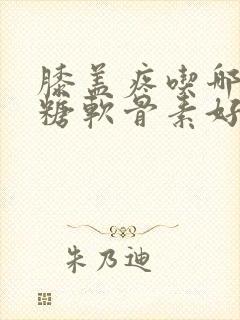 膝盖疼喫哪
糖軟骨素好
朱乃迪